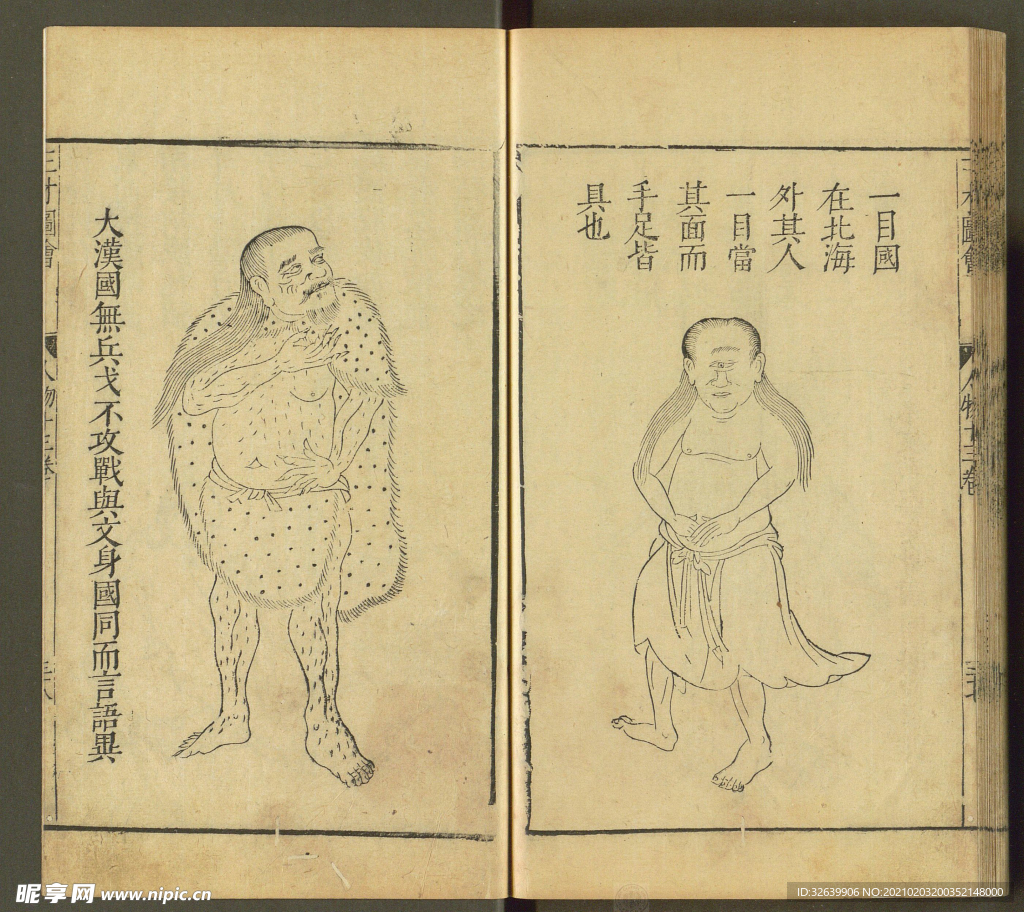 一目國
在北海
外其人
一目當
其面而
手足皆
具也
大漢國無兵戈不攻戰與文身國同而言語異
圖會
人物十三卷
三才圖會
人物十三卷
昵享网 www.nipic.cn
ID:32639906 NO:20210203200352148000